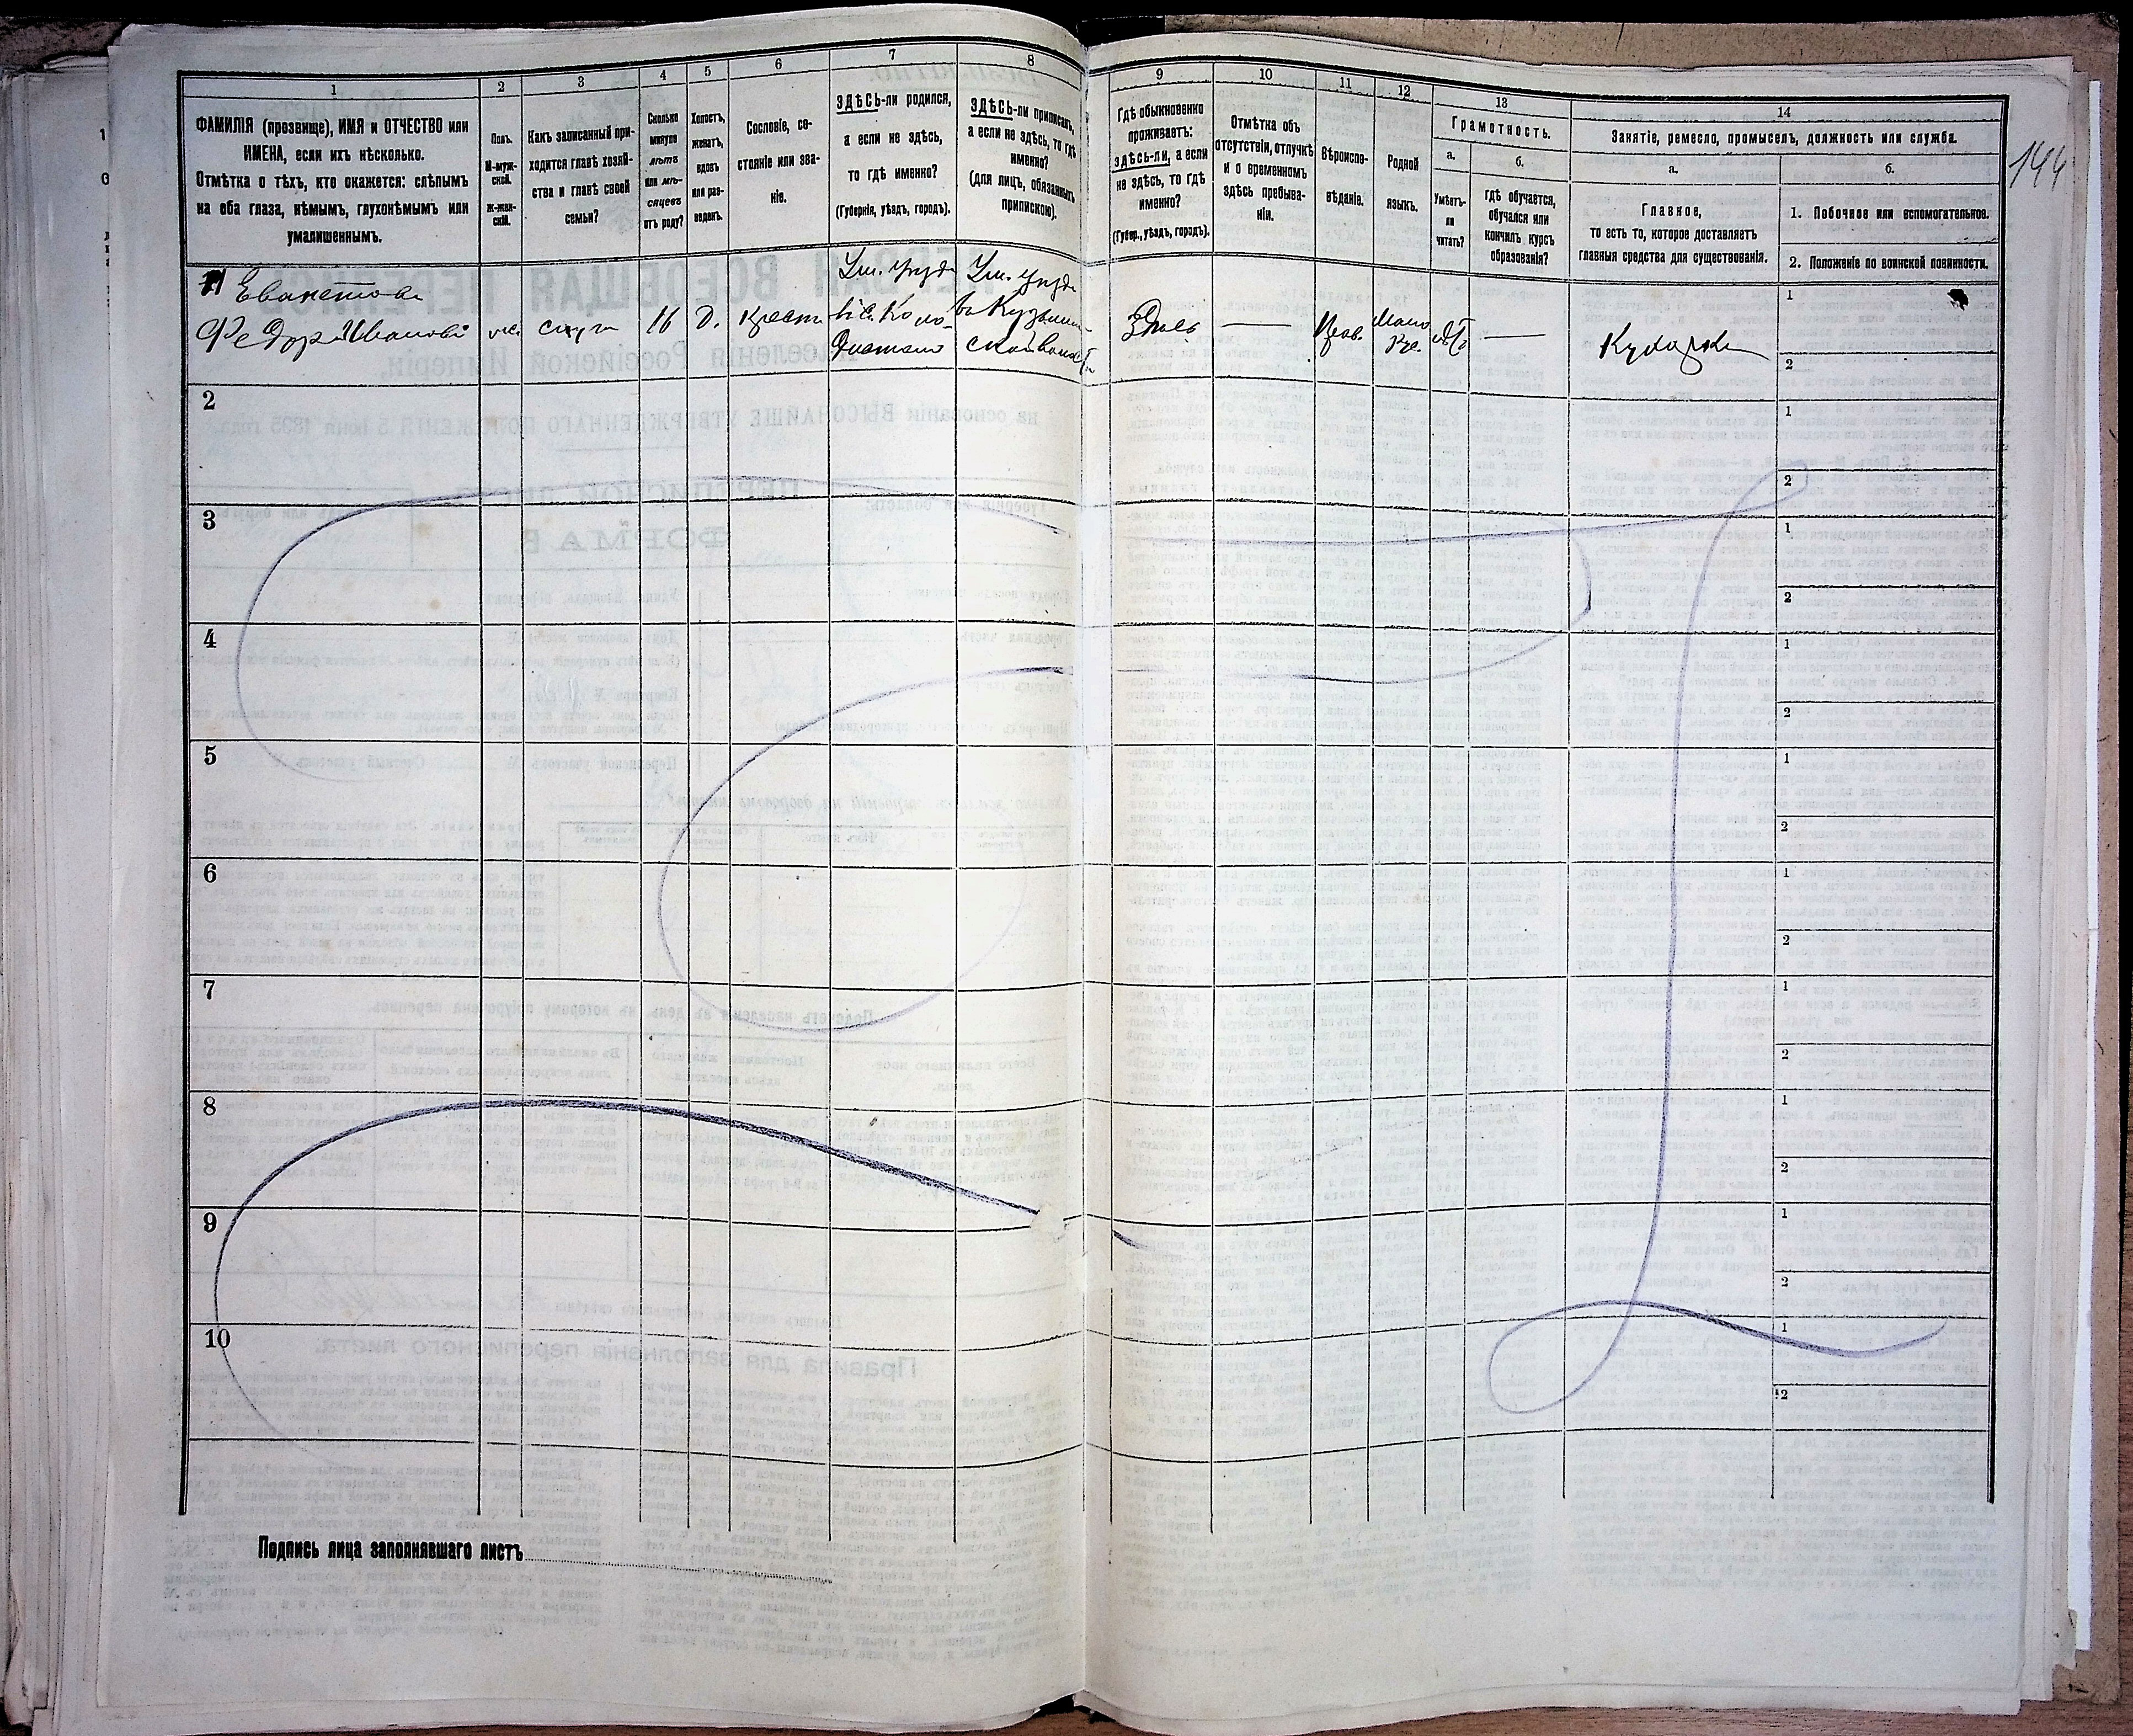 1
2
3
4
5
6
7
8
9
10
11
12
13
14
144
ФАМИЛІЯ (прозвище), ИМЯ и ОТЧЕСТВО или
ИМЕНА, если ихъ нѣсколько.
Отмѣтка о тѣхъ, кто окажется: слѣпымъ
на оба глаза, нѣмымъ, глухонѣмымъ или
умалишеннымъ.
Полъ.
М-муж-
ской.
Ж-жен-
скій.
Какъ записанный при-
ходится главѣ хозяй-
ства и главѣ своей
семьи?
Сколько
минуло
лѣтъ
или мѣ-
сяцевъ
отъ роду?
Холостъ,
женатъ,
вдовъ
или раз-
веденъ.
Сословіе, со-
стояніе или зва-
ніе.
ЗДѢСЬ-ли родился,
а если не здѣсь,
то гдѣ именно?
(Губернія, уѣздъ, городъ).
ЗДѢСЬ-ли приписанъ,
а если не здѣсь, то гдѣ
именно?
(для лицъ, обязанныхъ
припискою).
Гдѣ обыкновенно
проживаетъ:
здѣсь-ли, а если
не здѣсь, то гдѣ
именно?
(Губер., уѣздъ, городъ).
Отмѣтка объ
отсутствіи, отлучкѣ
и о временномъ
здѣсь пребыва-
ніи.
Вѣроиспо-
вѣданіе.
Родной
языкъ.
Грамотность.
а.
Умѣетъ-
ли
читать?
б.
гдѣ обучается,
обучался или
кончилъ курсъ
образованія?
Занятіе, ремесло, промыселъ, должность или служба.
а.
Главное,
то есть то, которое доставляетъ
главныя средства для существованія.
б.
1. Побочное или вспомогательное.
2. Положеніе по воинской повинности.
Федора Иванова
16
Д.
Здѣсь
—
Прав.
Мало
Рус.
—
Кухарка
1
2
2
1
2
3
1
2
4
1
2
5
1
2
6
1
2
7
1
2
8
1
2
9
1
2
10
1
2
Подпись лица заполнявшаго листъ